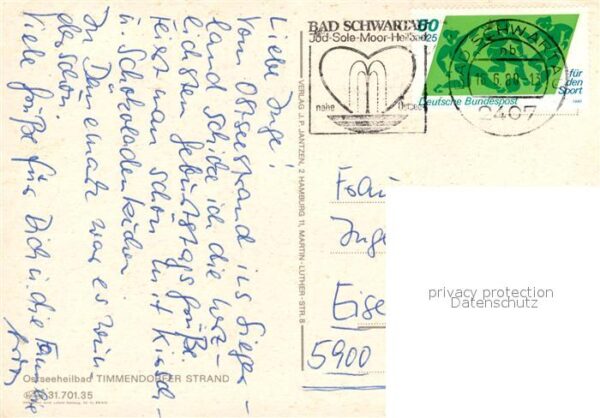 Liebe Inge!
Vom Ostseestrand ins Sieger-
land schicke ich die herz-
lichsten Geburtstagsgrüße
Feiert man schön mit Kirsch-
u. Schokoladenkuchen
In Dänemark war es wun-
derschön
Liebe Grüße für Dich u. die Familie
Ostseeheilbad TIMMENDORFER STRAND
31.701.35
VERLAG J. P. JANTZEN, 2 HAMBURG 11, MARTIN-LUTHER-STR. 8
BAD SCHWARTAU
Jod-Sole-Moor-Heilbad
nahe
60
+25
für
den
Sport
Deutsche Bundespost
1980
BAD SCHWARTAU
2407
Frau
Inge
Eise
5900
privacy protection
Datenschutz